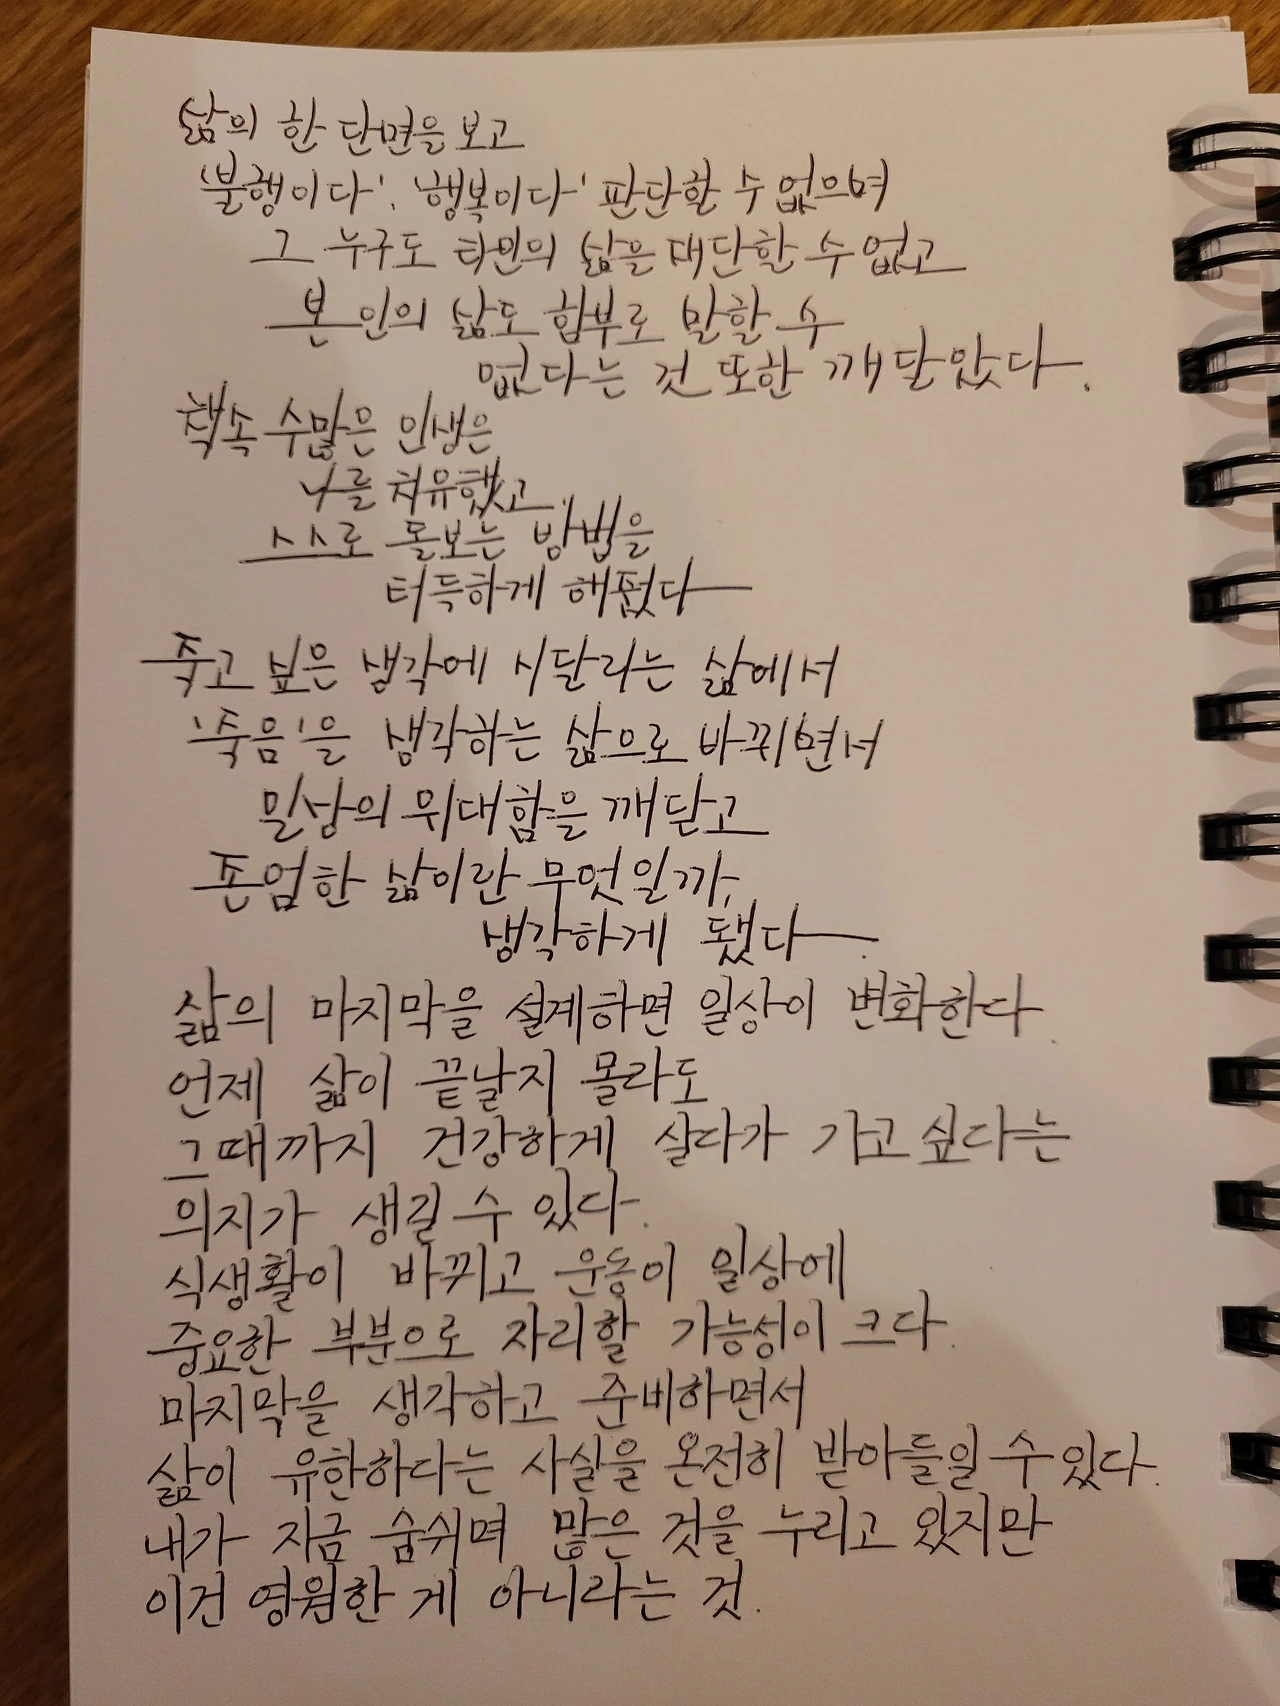 삶의 한 단면을 보고
'불행이다'. '행복이다' 판단할 수 없으며
그 누구도 타인의 삶을 재단할 수 없고
본인의 삶도 함부로 말할 수
없다는 것 또한 깨달았다.
책속 수많은 인생은
나를 치유했고
스스로 돌보는 방법을
터득하게 해줬다
죽고 싶은 생각에 시달리는 삶에서
'죽음'을 생각하는 삶으로 바뀌면서
일상의 위대함을 깨닫고
존엄한 삶이란 무엇일까,
생각하게 됐다.
삶의 마지막을 설계하면 일상이 변화한다.
언제 삶이 끝날지 몰라도
그때까지 건강하게 살다가 가고 싶다는
의지가 생길 수 있다.
식생활이 바뀌고 운동이 일상에
중요한 부분으로 자리할 가능성이 크다.
마지막을 생각하고 준비하면서
삶이 유한하다는 사실을 온전히 받아들일 수 있다.
내가 지금 숨쉬며 많은 것을 누리고 있지만
이건 영원한 게 아니라는 것.